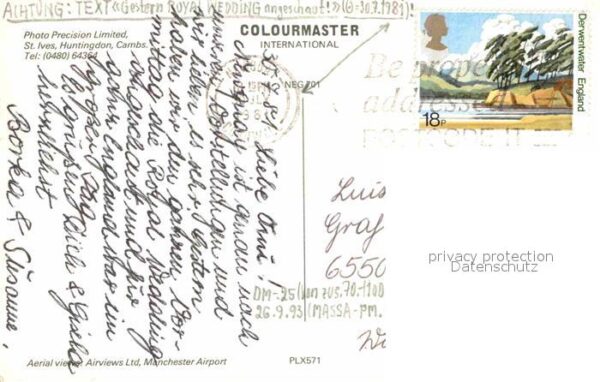 ACHTUNG: TEXT «Gestern ROYAL WEDDING angeschaut!» (@-30.7.1981)!
Photo Precision Limited,
St. Ives, Huntingdon, Cambs.
Tel: (0480) 64364
COLOURMASTER
INTERNATIONAL
NEG 201
Be properly
addressed
POSTCODE IT
Derwentwater England
18P
Liebe Omi!
ist genau nach
unseren Vorstellungen und
wir
haben wir den ganzen Vor-
mittag die Royal Wedding
angeschaut und für
ganz England war ein
grosser Tag.
Es grüssen Dich & Gisela
herzlichst
Borka & Susanne.
Luis
Graf
6550
DM-25 (von zus. 70.-
26.9.93 (MASSA-PM.
privacy protection
Datenschutz
Aerial views: Airviews Ltd, Manchester Airport
PLX571